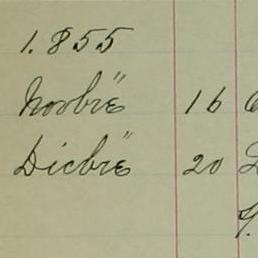 1.855
Novbrē" 16
Dicbrē" 20